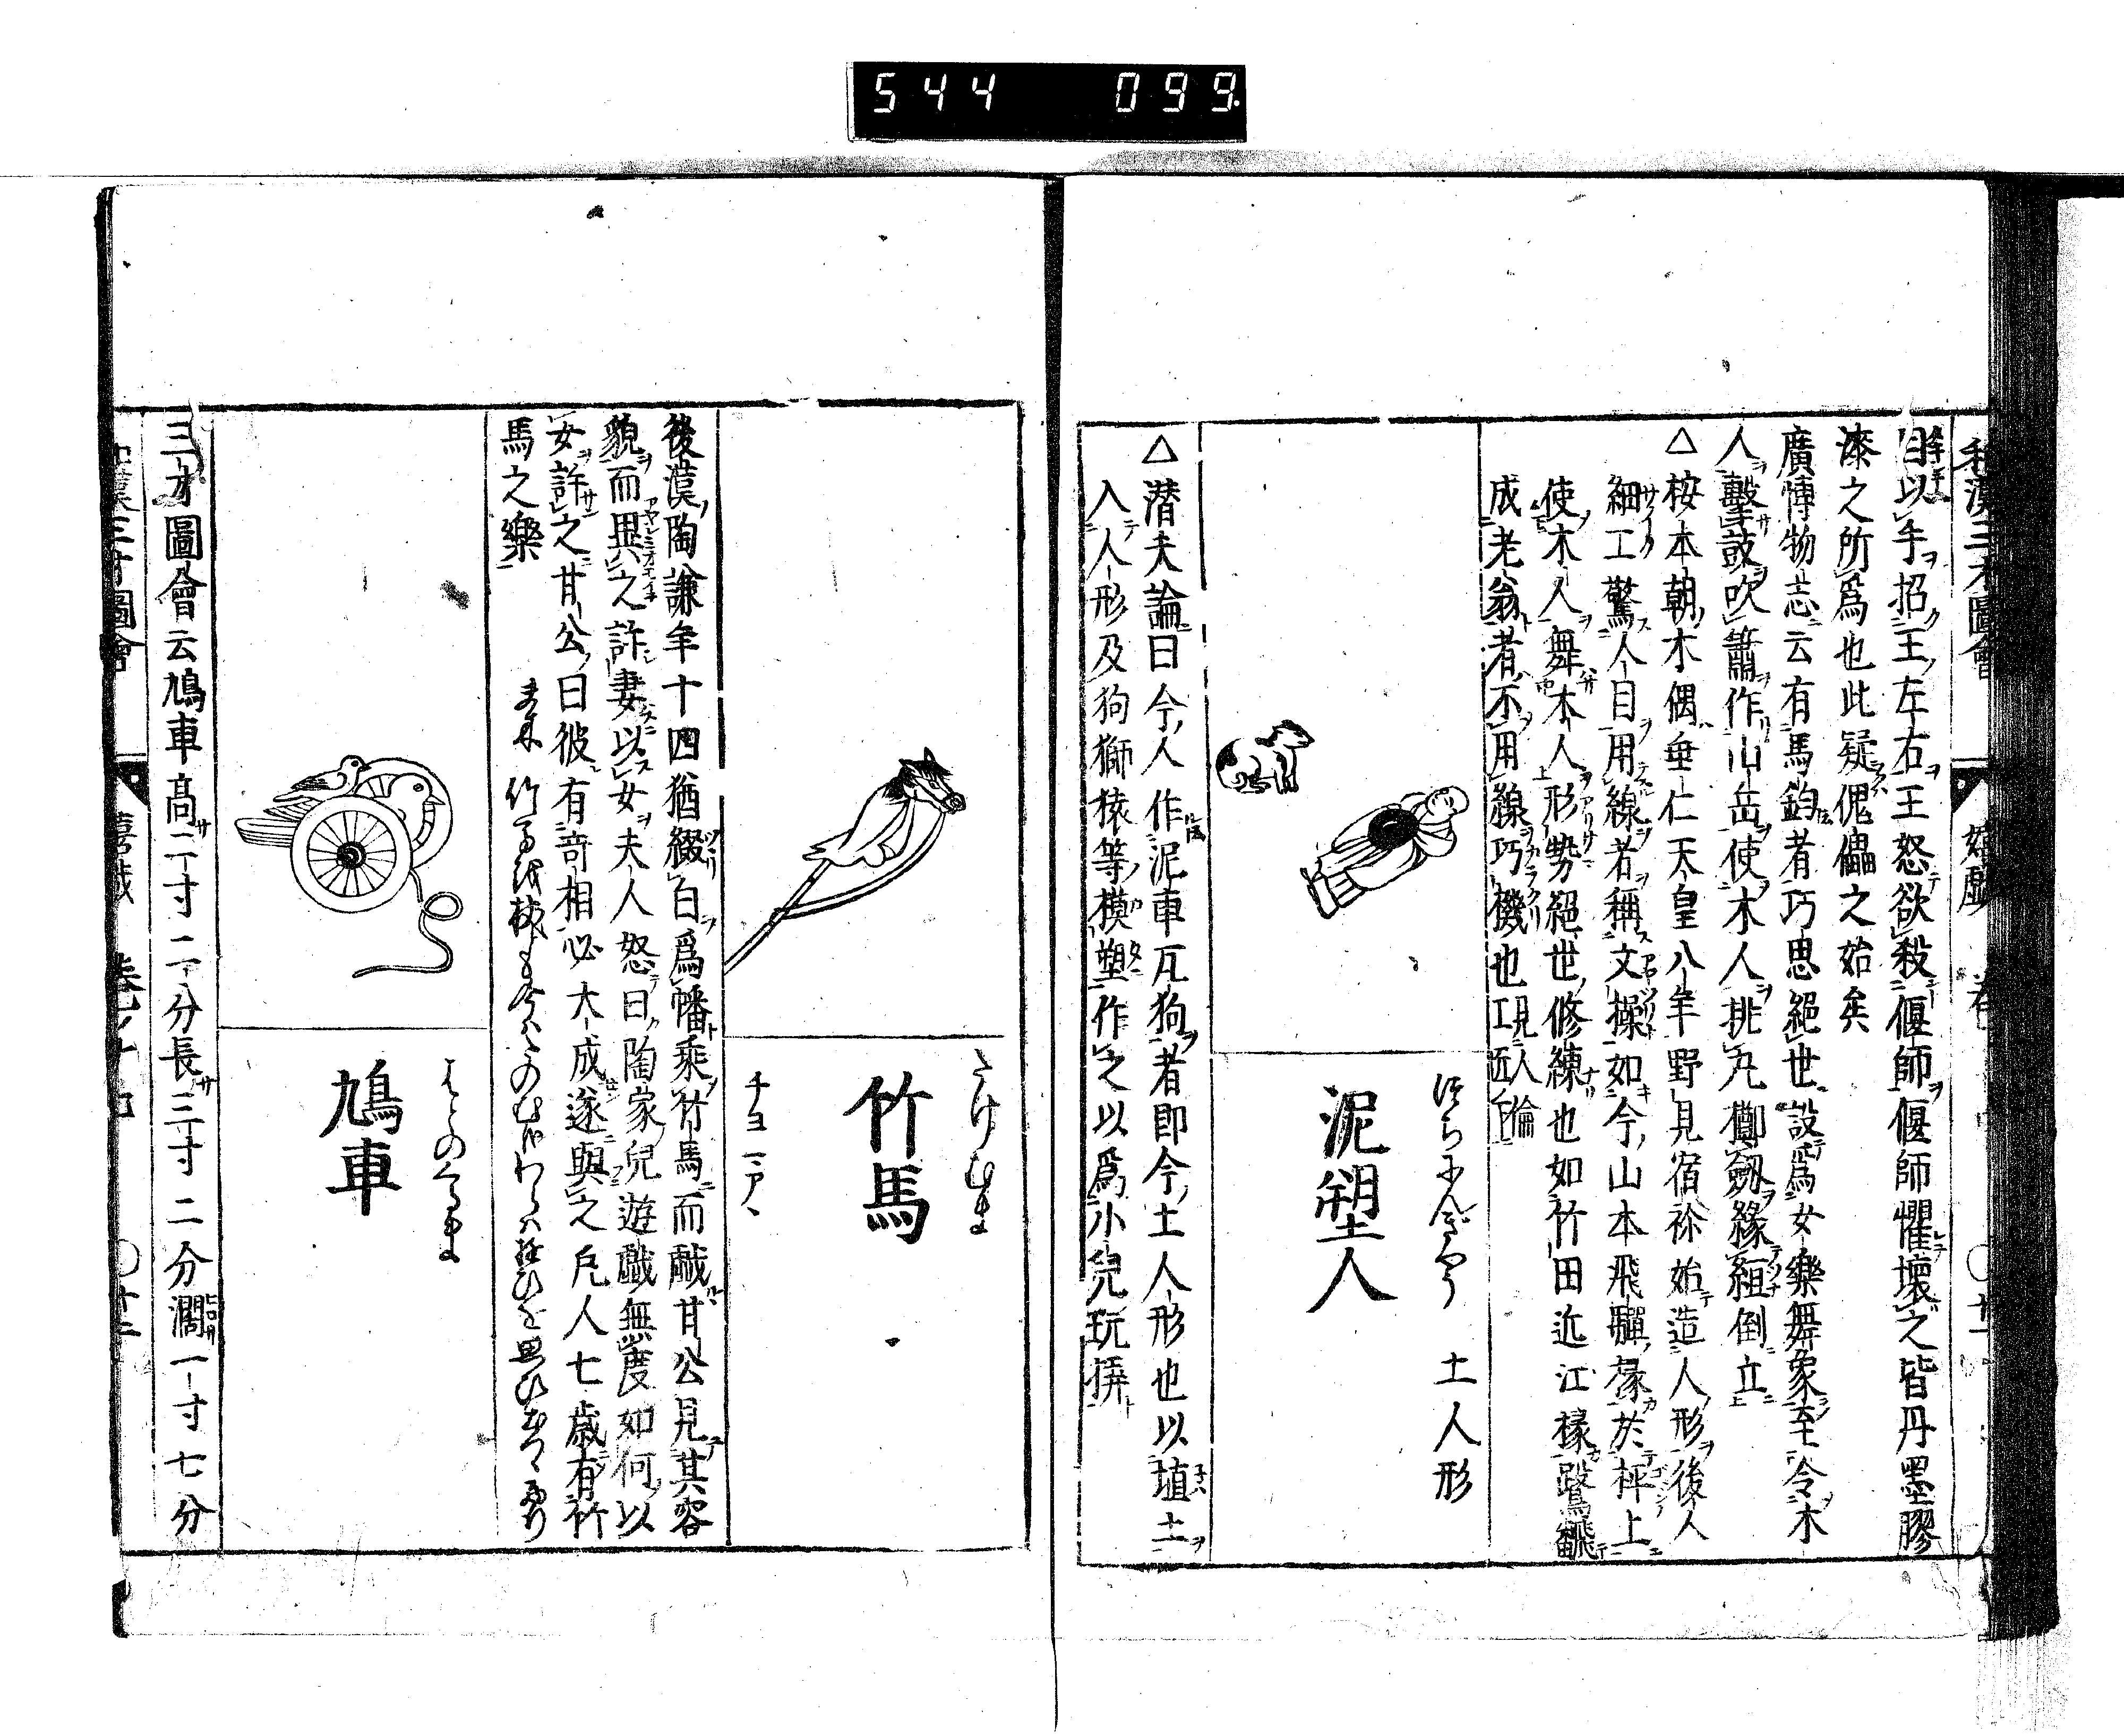 544 099
和漢三才圖會 嬉戲 卷
目以手招王左右王怒欲殺偃師偃師懼壞之皆丹墨膠
漆之所爲也此疑傀儡之始矣
廣博物志云有馬鈞者巧思絕世設爲女樂舞象至令木
人擊鼓吹簫作山岳使木人挑丸擲劔緣縆倒立
△桉本朝木偶垂仁天皇八年野見宿祢始造人形後人
細工驚人目用線者稱文操如今山本飛驒掾於枰上
使木人舞木人形勢絕世修練也如竹田近江掾
成老翁者不用線巧機也
土人形
泥塑人
△潜夫論曰今人作泥車瓦狗者即今土人形也以埴土
入人形及狗獅猿等模塑作之以爲小兒玩
たけむま
竹馬
後漢陶謙年十四猶綴白爲幡乘竹馬而戲甘公見其容
貌而異之許妻以女夫人怒曰陶家兒遊戲無度如何以
女許之甘公曰彼有奇相必大成遂與之凡人七歲有竹
馬之樂
はとのくるま
鳩車
三才圖會云鳩車高二寸二分長三寸二分濶一寸七分